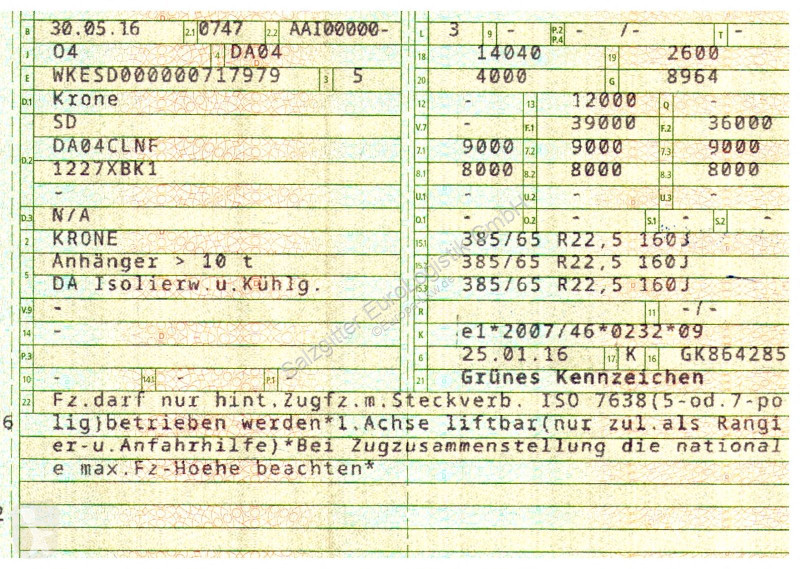 B 30.05.16 2.1 0747 2.2 AAI00000-
J 04 4 DA04
E WKESD000000717979 3 5
D.1 Krone
SD
D.2 DA04CLNF
1227XBK1
-
D.3 N/A
2 KRONE
Anhänger > 10 t
5 DA Isolierw.u.Kühlg.
V.9 -
14 -
P.3
10 - 14.1 - P.1 -
L 3 9 - P.2 P.4 - /- T -
18 14040 19 2600
20 4000 G 8964
12 - 13 12000 Q -
V.7 - F.1 39000 F.2 36000
7.1 9000 7.2 9000 7.3 9000
8.1 8000 8.2 8000 8.3 8000
U.1 - U.2 - U.3 -
O.1 - O.2 - S.1 - S.2 -
15.1 385/65 R22,5 160J
385/65 R22,5 160J
15.3 385/65 R22,5 160J
R 11 -/-
K e1*2007/46*0232*09
6 25.01.16 17 K 16 GK864285
21 Grünes Kennzeichen
22 Fz.darf nur hint.Zugfz.m.Steckverb. ISO 7638(5-od.7-po
lig)betrieben werden*1.Achse liftbar(nur zul.als Rangi
er-u.Anfahrhilfe)*Bei Zugzusammenstellung die national
e max.Fz-Hoehe beachten*
6
Salzgitter Eurologistik GmbH